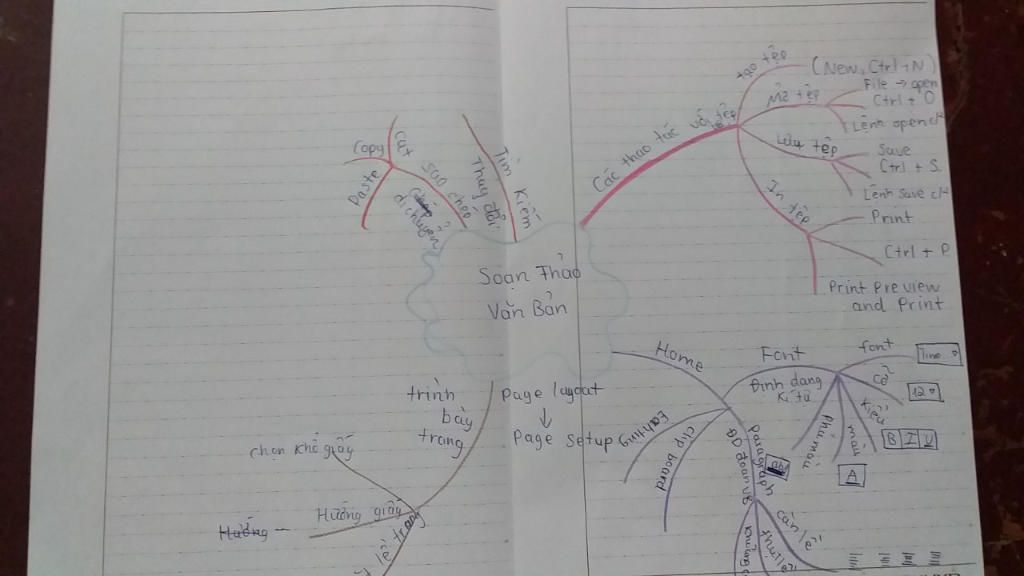 Soạn Thảo
Văn Bản
Các thao tác với tệp
tạo tệp
(New, Ctrl+N)
Mở tệp
File → open
Ctrl + O
Lệnh open
Lưu tệp
Save
Ctrl + S.
Lệnh save
In tệp
Print
Ctrl + P
Print Preview
and Print
Tìm kiếm
Thay đổi
Sao chép
di chuyển
Cut
Copy
Paste
Home
Font
Định dạng
kí tự
font
Time
cỡ
12
kiểu
B I U
màu
A
Paragraph
ĐD đoạn VB
căn lề
thụt lề
clip board
trình
bày
trang
Page layout
↓
Page setup
chọn khổ giấy
Hướng giấy
Hướng
lề trang